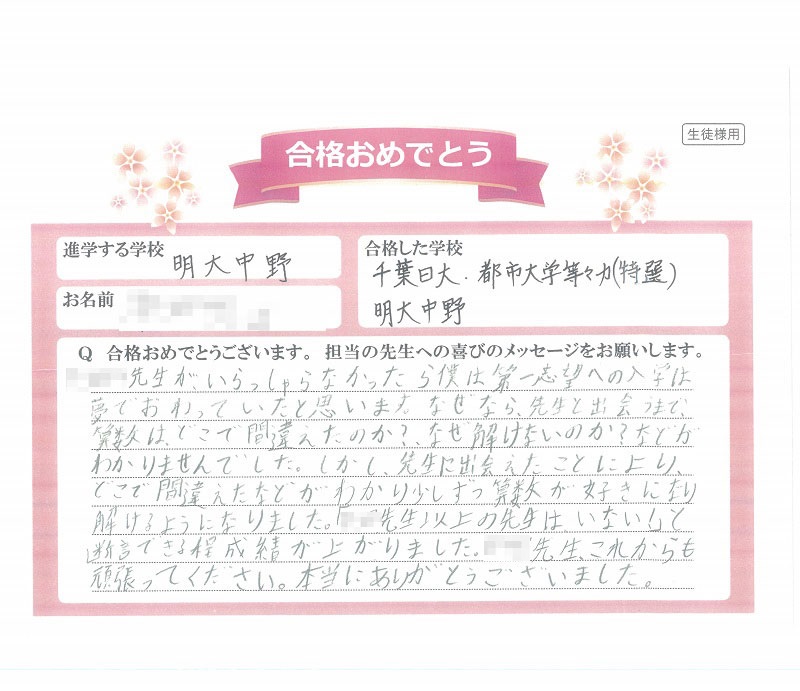 生徒様用
合格おめでとう
進学する学校
明大中野
お名前
合格した学校
千葉日大・都市大学等々力(特選)
明大中野
Q 合格おめでとうございます。担当の先生への喜びのメッセージをお願いします。
先生が、いらっしゃらなかったら僕は第一志望への入学は
夢でおわっていたと思います。なぜなら、先生と出会うまで、
算数は、どこで間違えたのか?、なぜ解けないのか?などが
わかりませんでした。しかし、先生に出会えたことにより、
どこで間違えたなどがわかり少しずつ算数が好きになり
解けるようになりました。「先生以上の先生はいない」と
断言できる程成績が上がりました。先生、これからも
頑張ってください。本当にありがとうございました。